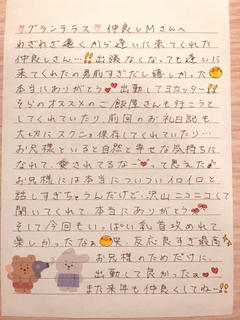 グランテラス 仲良しMさんへ
わざわざ遠くから逢いに来てくれた
仲良しさん…!! 出張なくなっても逢いに
来てくれたの男前すぎだし嬉しかった
本当にありがとう 出勤してヨカッター!!
そらのオススメのご飯屋さんも行こうと
してくれていたり、前回のお礼日記も
大切にスクショ保存してくれていたり…
お兄様といると自然と幸せな気持ちに
なれて、愛されてるな〜って思えた♪
お兄様には本当についついイロイロと
話しすぎちゃうんだけど、沢山ニコニコして
聞いてくれて、本当にありがとう
そして今回もいっぱい乳首攻めれて
楽しかったなぁ 笑、反応良すぎ最高
お兄様のためだけに、
出勤して良かったぁ
また来年も仲良くしてねー!!